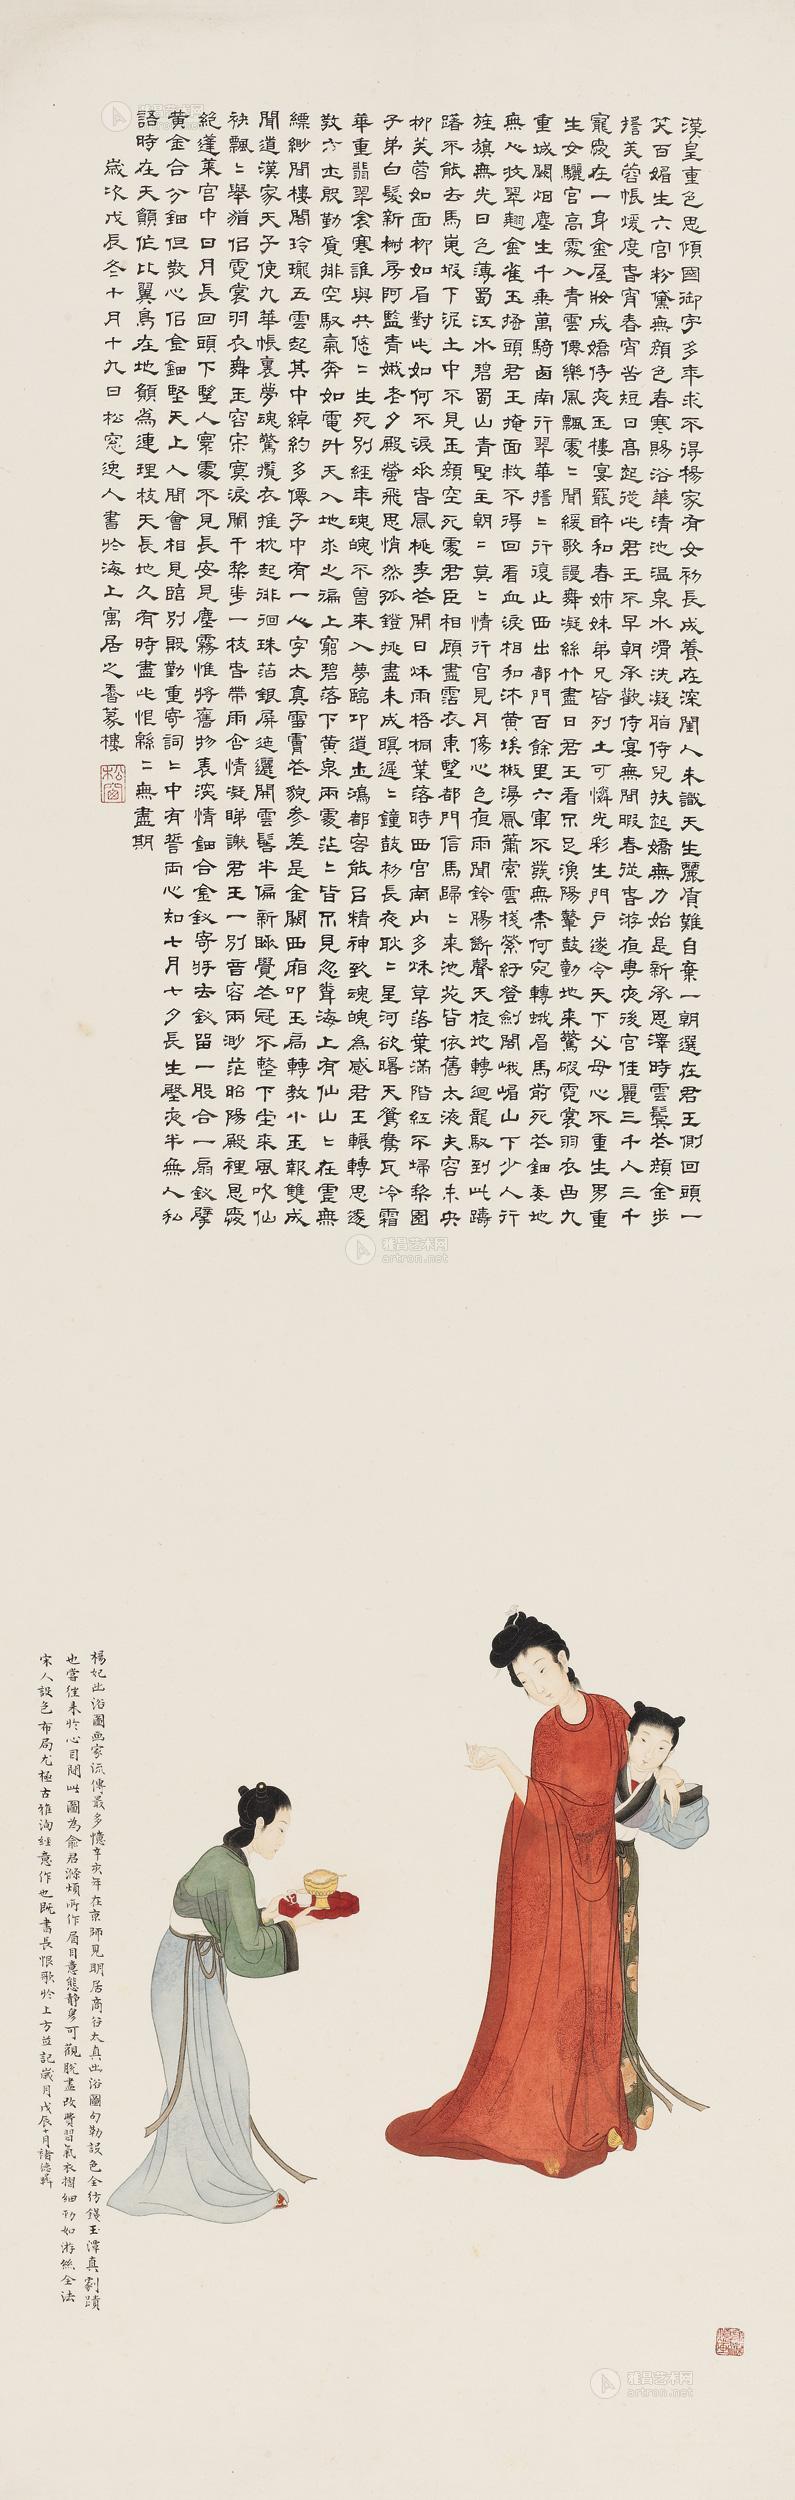 漢皇重色思傾國御宇多年求不得楊家有女初長成養在深閨人未識天生麗質難自棄一朝選在君王側回頭一
笑百媚生六宮粉黛無顏色春寒賜浴華清池温泉水滑洗凝脂侍兒扶起嬌無力始是新承恩澤時雲鬢花顏金步
搖芙蓉帳煖度春宵春宵苦短日高起從此君王不早朝承歡侍宴無閒暇春從春游夜專夜後宮佳麗三千人三千
寵愛在一身金屋妝成嬌侍夜玉樓宴罷醉和春姊妹弟兄皆列土可憐光彩生門户遂令天下父母心不重生男重
生女驪宮高處入青雲僊樂風飄處〻聞緩歌謾舞凝絲竹盡日君王看不足漁陽鼙鼓動地來驚破霓裳羽衣曲九
重城闕烟塵生千乘萬騎西南行翠華搖〻行復止西出都門百餘里六軍不發無柰何宛轉蛾眉馬前死花鈿委地
無人收翠翹金雀玉搔頭君王掩面救不得回看血淚相和沐黄埃散漫風蕭索雲棧縈紆登劍閣峨嵋山下少人行
旌旗無光日色薄蜀江水碧蜀山青聖主朝〻莫〻情行宮見月傷心色夜雨聞鈴腸斷聲天旋地轉迴龍馭到此躊
躇不能去馬嵬坡下泥土中不見玉顏空死處君臣相顧盡霑衣東望都門信馬歸〻來池苑皆依舊太液芙容未央
柳芙蓉如面柳如眉對此如何不淚垂春風桃李花開日秋雨梧桐葉落時西宮南内多秋草落葉滿階紅不埽棃園
子弟白髮新椒房阿監青娥老夕殿螢飛思悄然孤鐙挑盡未成瞑遲〻鐘鼓初長夜耿〻星河欲曙天鴛鴦瓦冷霜
華重翡翠衾寒誰與共悠〻生死别經年魂魄不曾來入夢臨卭道士鴻都客能以精神致魂魄為感君王輾轉思遂
教方士殷勤覓排空馭氣奔如電升天入地求之徧上窮碧落下黄泉兩處茫〻皆不見忽聞海上有仙山〻在虛無
縹緲間樓閣玲瓏五雲起其中綽約多僊子中有一人字太真雪膚花貌參差是金闕西廂叩玉扃轉教小玉報雙成
聞道漢家天子使九華帳裏夢魂驚攬衣推枕起徘徊珠箔銀屏迤邐開雲髻半偏新睡覺花冠不整下堂來風吹仙
袂飄〻舉猶侣霓裳羽衣舞玉容寂寞淚闌干棃花一枝春帶雨含情凝睇謝君王一别音容兩渺茫昭陽殿裡恩愛
絶蓬萊宮中日月長回頭下望人寰處不見長安見塵霧惟將舊物表深情鈿合金釵寄將去釵留一股合一扇釵擘
黄金合分鈿但教心侣金鈿堅天上人間會相見臨别殷勤重寄詞〻中有誓兩心知七月七夕長生殿夜半無人私
語時在天願作比翼鳥在地願為連理枝天長地久有時盡此恨緜〻無盡期
歲次戊辰冬十月十九日松窓逸人書於海上寓居之香篆樓
松窗
楊妃出浴圖画家流傳最多憶辛亥年在京師見明居商谷太真出浴圖勾勒設色全仿錢玉潭真劇蹟
也嘗往來於心目間此圖為俞君滌煩所作眉目意態靜㝵可觀脱盡改費習氣衣摺細劲如游絲全法
宋人設色布局尤極古雅洵經意作也既書長恨歌於上方並記歲月戊辰十月諸德彝
雅昌艺术网
artron.net
雅昌艺术网
artron.net
雅昌艺术网
artron.net